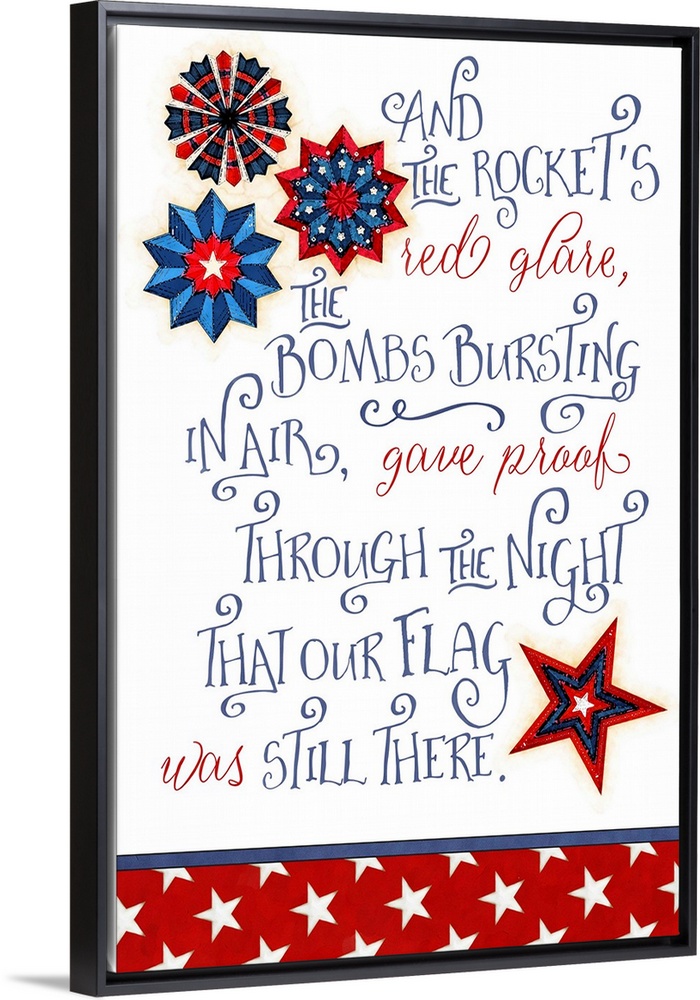 AND
THE ROCKET'S
red glare,
THE
BOMBS BURSTING
IN AIR, gave proof
THROUGH THE NIGHT
THAT OUR FLAG
was STILL THERE.